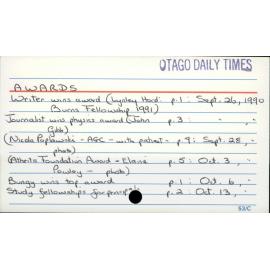 OTAGO DAILY TIMES
AWARDS
Writer wins award (Lynley Hood: p.1: Sept. 26, 1990
Burns Fellowship 1991)
Journalist wins physics award (John p.3: " "
Gibb)
(Nicola Poplawski - AGC - with patient - p.9: Sept. 28, "
photo)
(Athena Foundation Award - Elaine p.5: Oct. 3, "
- photo)
Bungy wins top award p.1: Oct. 6, "
Study fellowships for p.2: Oct. 13, "
53/C